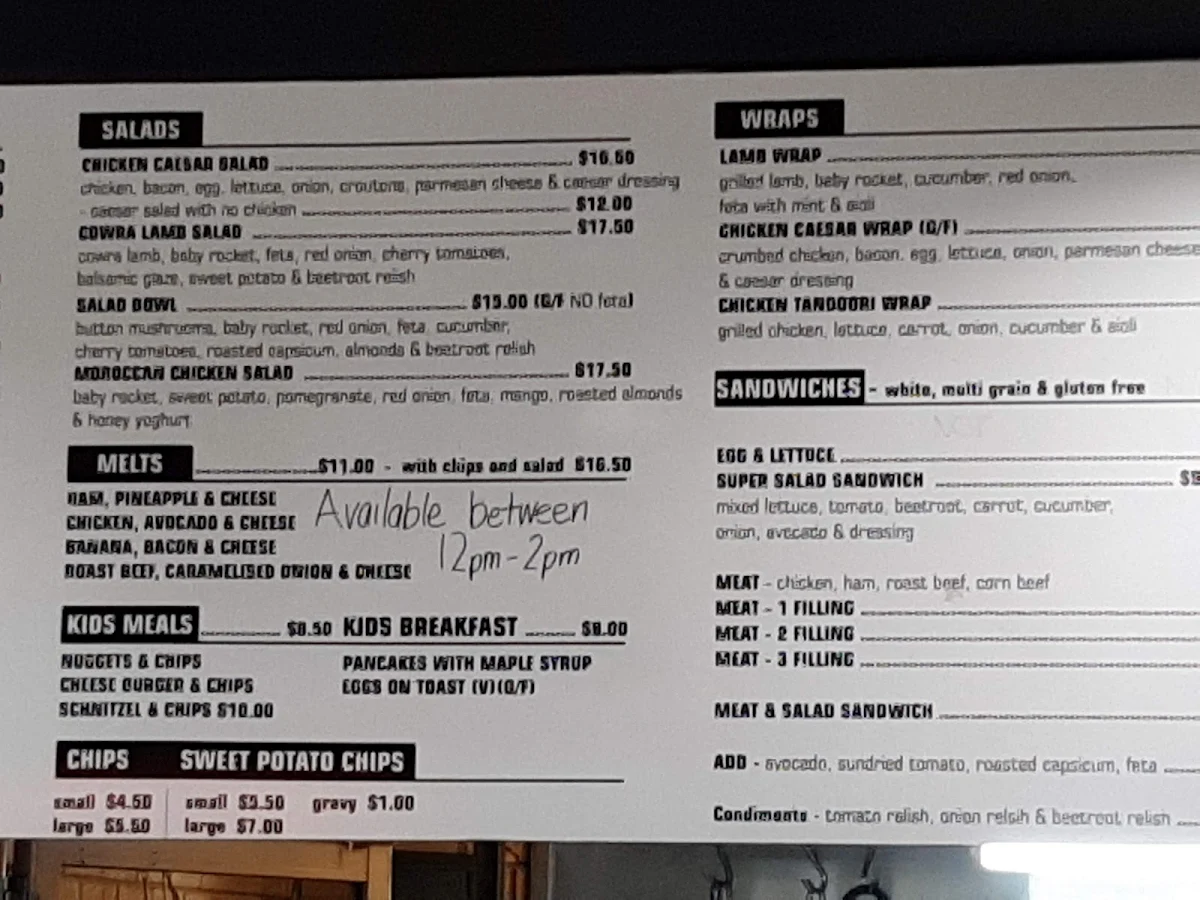 SALADS
CHICKEN CAESAR SALAD $16.50
chicken, bacon, egg, lettuce, onion, croutons, parmesan cheese & caesar dressing
- caesar salad with no chicken $12.00
COWRA LAMB SALAD $17.50
cowra lamb, baby rocket, feta, red onion, cherry tomatoes,
balsamic glaze, sweet potato & beetroot relish
SALAD BOWL $15.00 (G/F NO feta)
button mushrooms, baby rocket, red onion, feta, cucumber,
cherry tomatoes, roasted capsicum, almonds & beetroot relish
MOROCCAN CHICKEN SALAD $17.50
baby rocket, sweet potato, pomegranate, red onion, feta, mango, roasted almonds
& honey yoghurt
MELTS $11.00 - with chips and salad $16.50
HAM, PINEAPPLE & CHEESE
CHICKEN, AVOCADO & CHEESE
BANANA, BACON & CHEESE
ROAST BEEF, CARAMELISED ONION & CHEESE
Available between
12pm-2pm
KIDS MEALS $8.50
NUGGETS & CHIPS
CHEESE BURGER & CHIPS
SCHNITZEL & CHIPS $10.00
KIDS BREAKFAST
PANCAKES WITH MAPLE SYRUP
EGGS ON TOAST (V)(G/F)
CHIPS
small $4.50
large $5.50
SWEET POTATO CHIPS
small $5.50 gravy $1.00
large $7.00
WRAPS
LAMB WRAP
grilled lamb, baby rocket, cucumber, red onion,
feta with mint & aioli
CHICKEN CAESAR WRAP (G/F)
crumbed chicken, bacon, egg, lettuce, onion, parmesan cheese
& caesar dressing
CHICKEN TANDOORI WRAP
grilled chicken, lettuce, carrot, onion, cucumber & aioli
SANDWICHES - white, multi grain & gluten free
EGG & LETTUCE
SUPER SALAD SANDWICH
mixed lettuce, tomato, beetroot, carrot, cucumber,
onion, avocado & dressing
MEAT - chicken, ham, roast beef, corn beef
MEAT - 1 FILLING
MEAT - 2 FILLING
MEAT - 3 FILLING
MEAT & SALAD SANDWICH
ADD - avocado, sundried tomato, roasted capsicum, feta
Condiments - tomato relish, onion relsih & beetroot relish